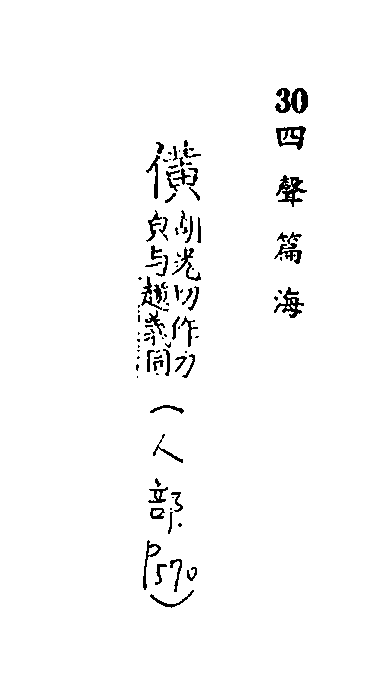 30四聲篇海
僙
胡光切作力
皃与趪義同
（人部P570）